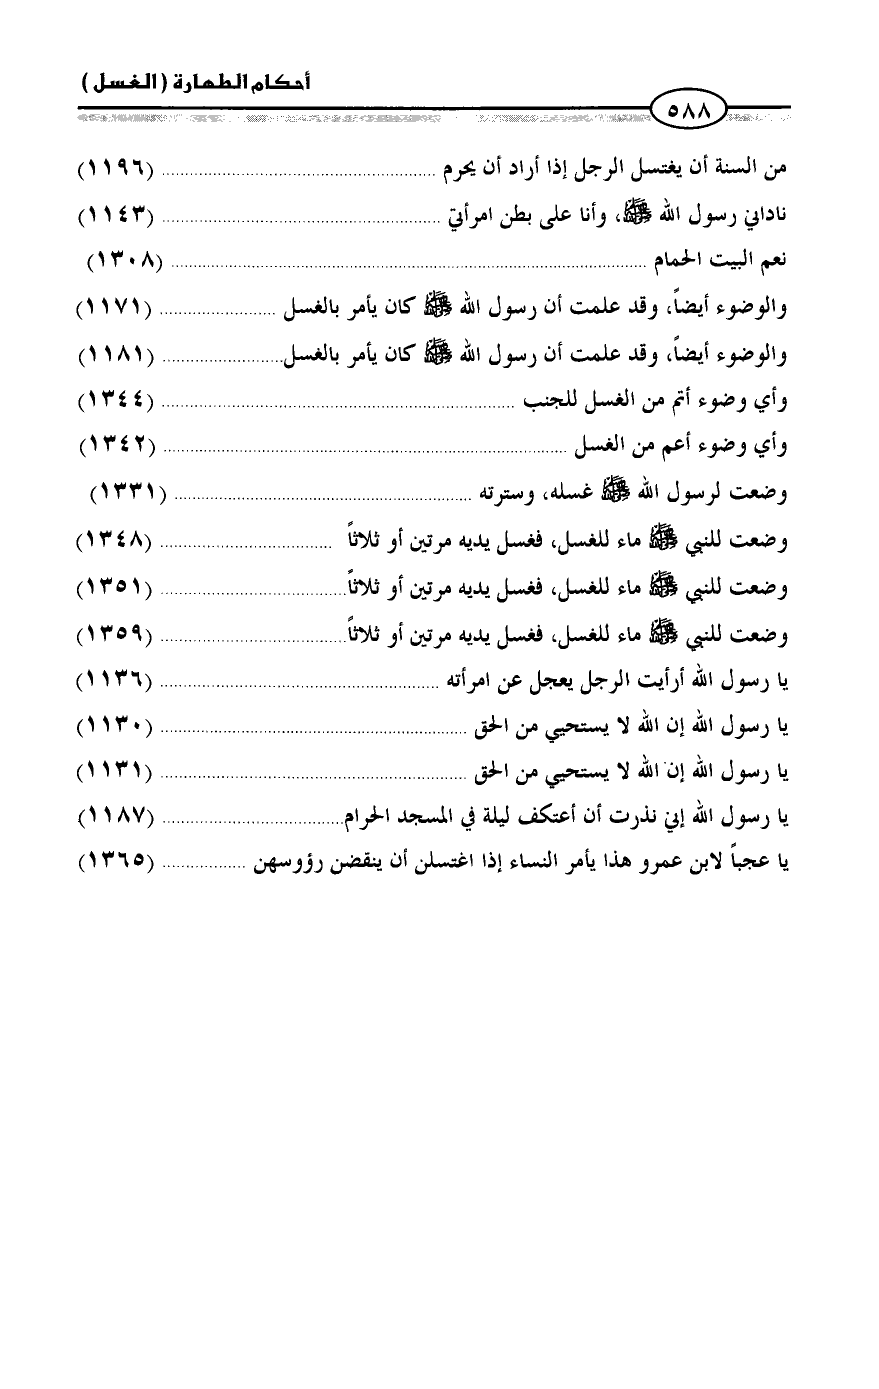 أحكام الطهارة (الغسل)
٥٨٨
من السنة أن يغتسل الرجل إذا أراد أن يحرم ........ (١١٩٦)
ناداني رسول الله ﷺ، وأنا على بطن امرأتي ........ (١١٤٣)
نعم البيت الحمام ........ (١٣٠٨)
والوضوء أيضاً، وقد علمت أن رسول الله ﷺ كان يأمر بالغسل ........ (١١٧١)
والوضوء أيضاً، وقد علمت أن رسول الله ﷺ كان يأمر بالغسل ........ (١١٨١)
وأي وضوء أتم من الغسل للجنب ........ (١٣٤٤)
وأي وضوء أعم من الغسل ........ (١٣٤٢)
وضعت لرسول الله ﷺ غسله، وسترته ........ (١٣٣١)
وضعت للنبي ﷺ ماء للغسل، فغسل يديه مرتين أو ثلاثاً ........ (١٣٤٨)
وضعت للنبي ﷺ ماء للغسل، فغسل يديه مرتين أو ثلاثاً ........ (١٣٥١)
وضعت للنبي ﷺ ماء للغسل، فغسل يديه مرتين أو ثلاثاً ........ (١٣٥٩)
يا رسول الله أرأيت الرجل يعجل عن امرأته ........ (١١٣٦)
يا رسول الله إن الله لا يستحيي من الحق ........ (١١٣٠)
يا رسول الله إن الله لا يستحيي من الحق ........ (١١٣١)
يا رسول الله إني نذرت أن أعتكف ليلة في المسجد الحرام ........ (١١٨٧)
يا عجباً لابن عمرو هذا يأمر النساء إذا اغتسلن أن ينقضن رؤوسهن ........ (١٣٦٥)